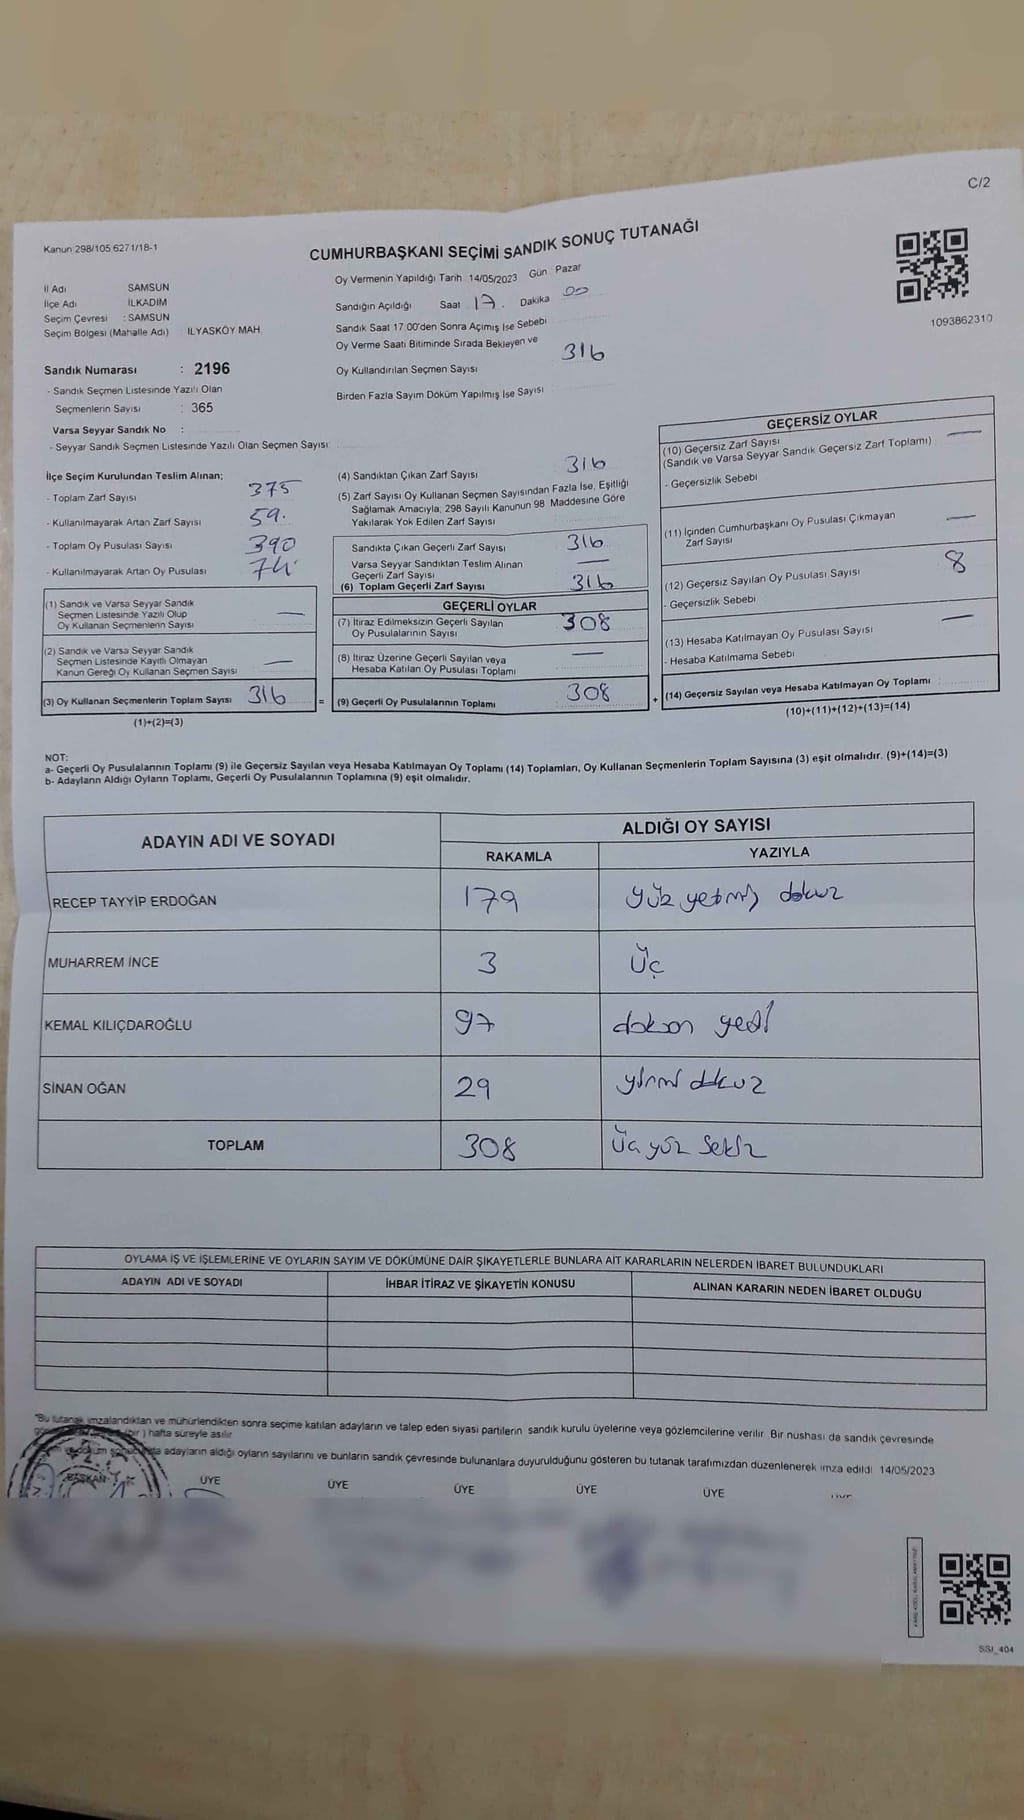 C/2
Kanun 298/105 6271/18-1
CUMHURBAŞKANI SEÇİMİ SANDIK SONUÇ TUTANAĞI
1093862310
İl Adı SAMSUN
İlçe Adı İLKADIM
Seçim Çevresi : SAMSUN
Seçim Bölgesi (Mahalle Adı) : İLYASKÖY MAH.
Sandık Numarası : 2196
- Sandık Seçmen Listesinde Yazılı Olan
Seçmenlerin Sayısı : 365
Varsa Seyyar Sandık No :
- Seyyar Sandık Seçmen Listesinde Yazılı Olan Seçmen Sayısı:
Oy Vermenin Yapıldığı Tarih 14/05/2023 Gün Pazar
Sandığın Açıldığı Saat 17. Dakika 00
Sandık Saat 17:00'den Sonra Açımış İse Sebebi
Oy Verme Saati Bitiminde Sırada Bekleyen ve
Oy Kullandırılan Seçmen Sayısı 316
Birden Fazla Sayım Döküm Yapılmış İse Sayısı :
İlçe Seçim Kurulundan Teslim Alınan;
- Toplam Zarf Sayısı 375
- Kullanılmayarak Artan Zarf Sayısı 59.
- Toplam Oy Pusulası Sayısı 390
- Kullanılmayarak Artan Oy Pusulası 74
(1) Sandık ve Varsa Seyyar Sandık
Seçmen Listesinde Yazılı Olup
Oy Kullanan Seçmenlerin Sayısı —
(2) Sandık ve Varsa Seyyar Sandık
Seçmen Listesinde Kayıtlı Olmayan
Kanun Gereği Oy Kullanan Seçmen Sayısı —
(3) Oy Kullanan Seçmenlerin Toplam Sayısı 316 =
(1)+(2)=(3)
(4) Sandıktan Çıkan Zarf Sayısı 316
(5) Zarf Sayısı Oy Kullanan Seçmen Sayısından Fazla İse, Eşitliği
Sağlamak Amacıyla; 298 Sayılı Kanunun 98. Maddesine Göre
Yakılarak Yok Edilen Zarf Sayısı
Sandıkta Çıkan Geçerli Zarf Sayısı 316
Varsa Seyyar Sandıktan Teslim Alınan
Geçerli Zarf Sayısı —
(6) Toplam Geçerli Zarf Sayısı 316
GEÇERLİ OYLAR
(7) İtiraz Edilmeksizin Geçerli Sayılan
Oy Pusulalarının Sayısı 308
(8) İtiraz Üzerine Geçerli Sayılan veya
Hesaba Katılan Oy Pusulası Toplamı —
(9) Geçerli Oy Pusulalarının Toplamı 308 +
GEÇERSİZ OYLAR
(10) Geçersiz Zarf Sayısı
(Sandık ve Varsa Seyyar Sandık Geçersiz Zarf Toplamı) —
- Geçersizlik Sebebi
(11) İçinden Cumhurbaşkanı Oy Pusulası Çıkmayan
Zarf Sayısı —
(12) Geçersiz Sayılan Oy Pusulası Sayısı 8
- Geçersizlik Sebebi
(13) Hesaba Katılmayan Oy Pusulası Sayısı —
- Hesaba Katılmama Sebebi
(14) Geçersiz Sayılan veya Hesaba Katılmayan Oy Toplamı
(10)+(11)+(12)+(13)=(14)
NOT:
a- Geçerli Oy Pusulalarının Toplamı (9) ile Geçersiz Sayılan veya Hesaba Katılmayan Oy Toplamı (14) Toplamları, Oy Kullanan Seçmenlerin Toplam Sayısına (3) eşit olmalıdır. (9)+(14)=(3)
b- Adayların Aldığı Oyların Toplamı, Geçerli Oy Pusulalarının Toplamına (9) eşit olmalıdır.
ADAYIN ADI VE SOYADI
ALDIĞI OY SAYISI
RAKAMLA YAZIYLA
RECEP TAYYİP ERDOĞAN 179 yüz yetmiş dokuz
MUHARREM İNCE 3 üç
KEMAL KILIÇDAROĞLU 97 doksan yedi
SİNAN OĞAN 29 yirmi dokuz
TOPLAM 308 üç yüz sekiz
OYLAMA İŞ VE İŞLEMLERİNE VE OYLARIN SAYIM VE DÖKÜMÜNE DAİR ŞİKAYETLERLE BUNLARA AİT KARARLARIN NELERDEN İBARET BULUNDUKLARI
ADAYIN ADI VE SOYADI İHBAR İTİRAZ VE ŞİKAYETİN KONUSU ALINAN KARARIN NEDEN İBARET OLDUĞU
"Bu tutanak imzalandıktan ve mühürlendikten sonra seçime katılan adayların ve talep eden siyasi partilerin sandık kurulu üyelerine veya gözlemcilerine verilir. Bir nüshası da sandık çevresinde
(bir) hafta süreyle asılır
adayların aldığı oyların sayılarını ve bunların sandık çevresinde bulunanlara duyurulduğunu gösteren bu tutanak tarafımızdan düzenlenerek imza edildi 14/05/2023
BAŞKAN ÜYE ÜYE ÜYE ÜYE ÜYE
SSJ_404